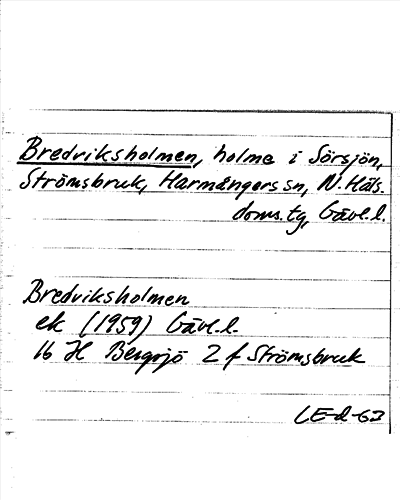 Bredviksholmen, holme i Sörsjön,
Strömsbruk, Harmångers sn, N. Häls.
doms. tg, Gävl. l.
Bredviksholmen
ek (1959) Gävl. l.
16 H Bergsjö 2 f Strömsbruk
LE-d-63